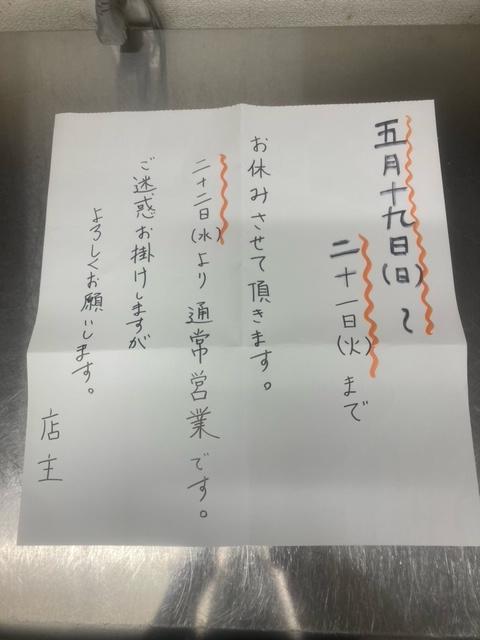 五月十九日(日)〜
二十一日(火)まで
お休みさせて頂きます。
二十二日(水)より通常営業です。
ご迷惑お掛けしますが
よろしくお願いします。
店主